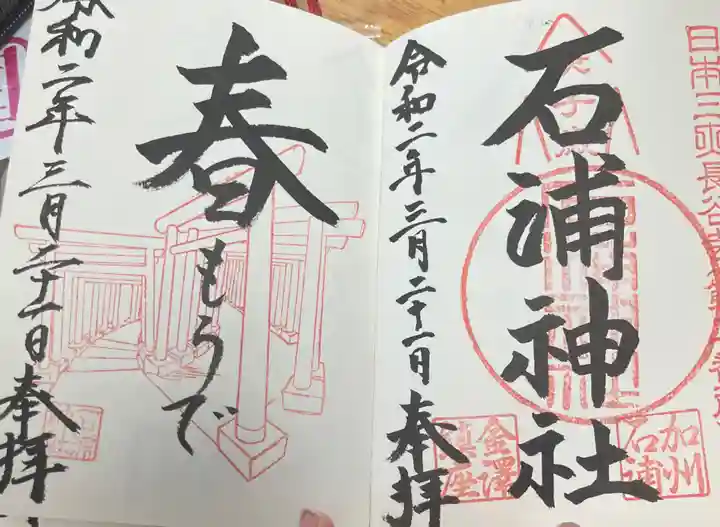 日本三所長谷
石浦神社
加州
石浦
金澤
鎮座
令和二年三月二十一日 奉拝
春もうで
令和二年三月二十一日 奉拝